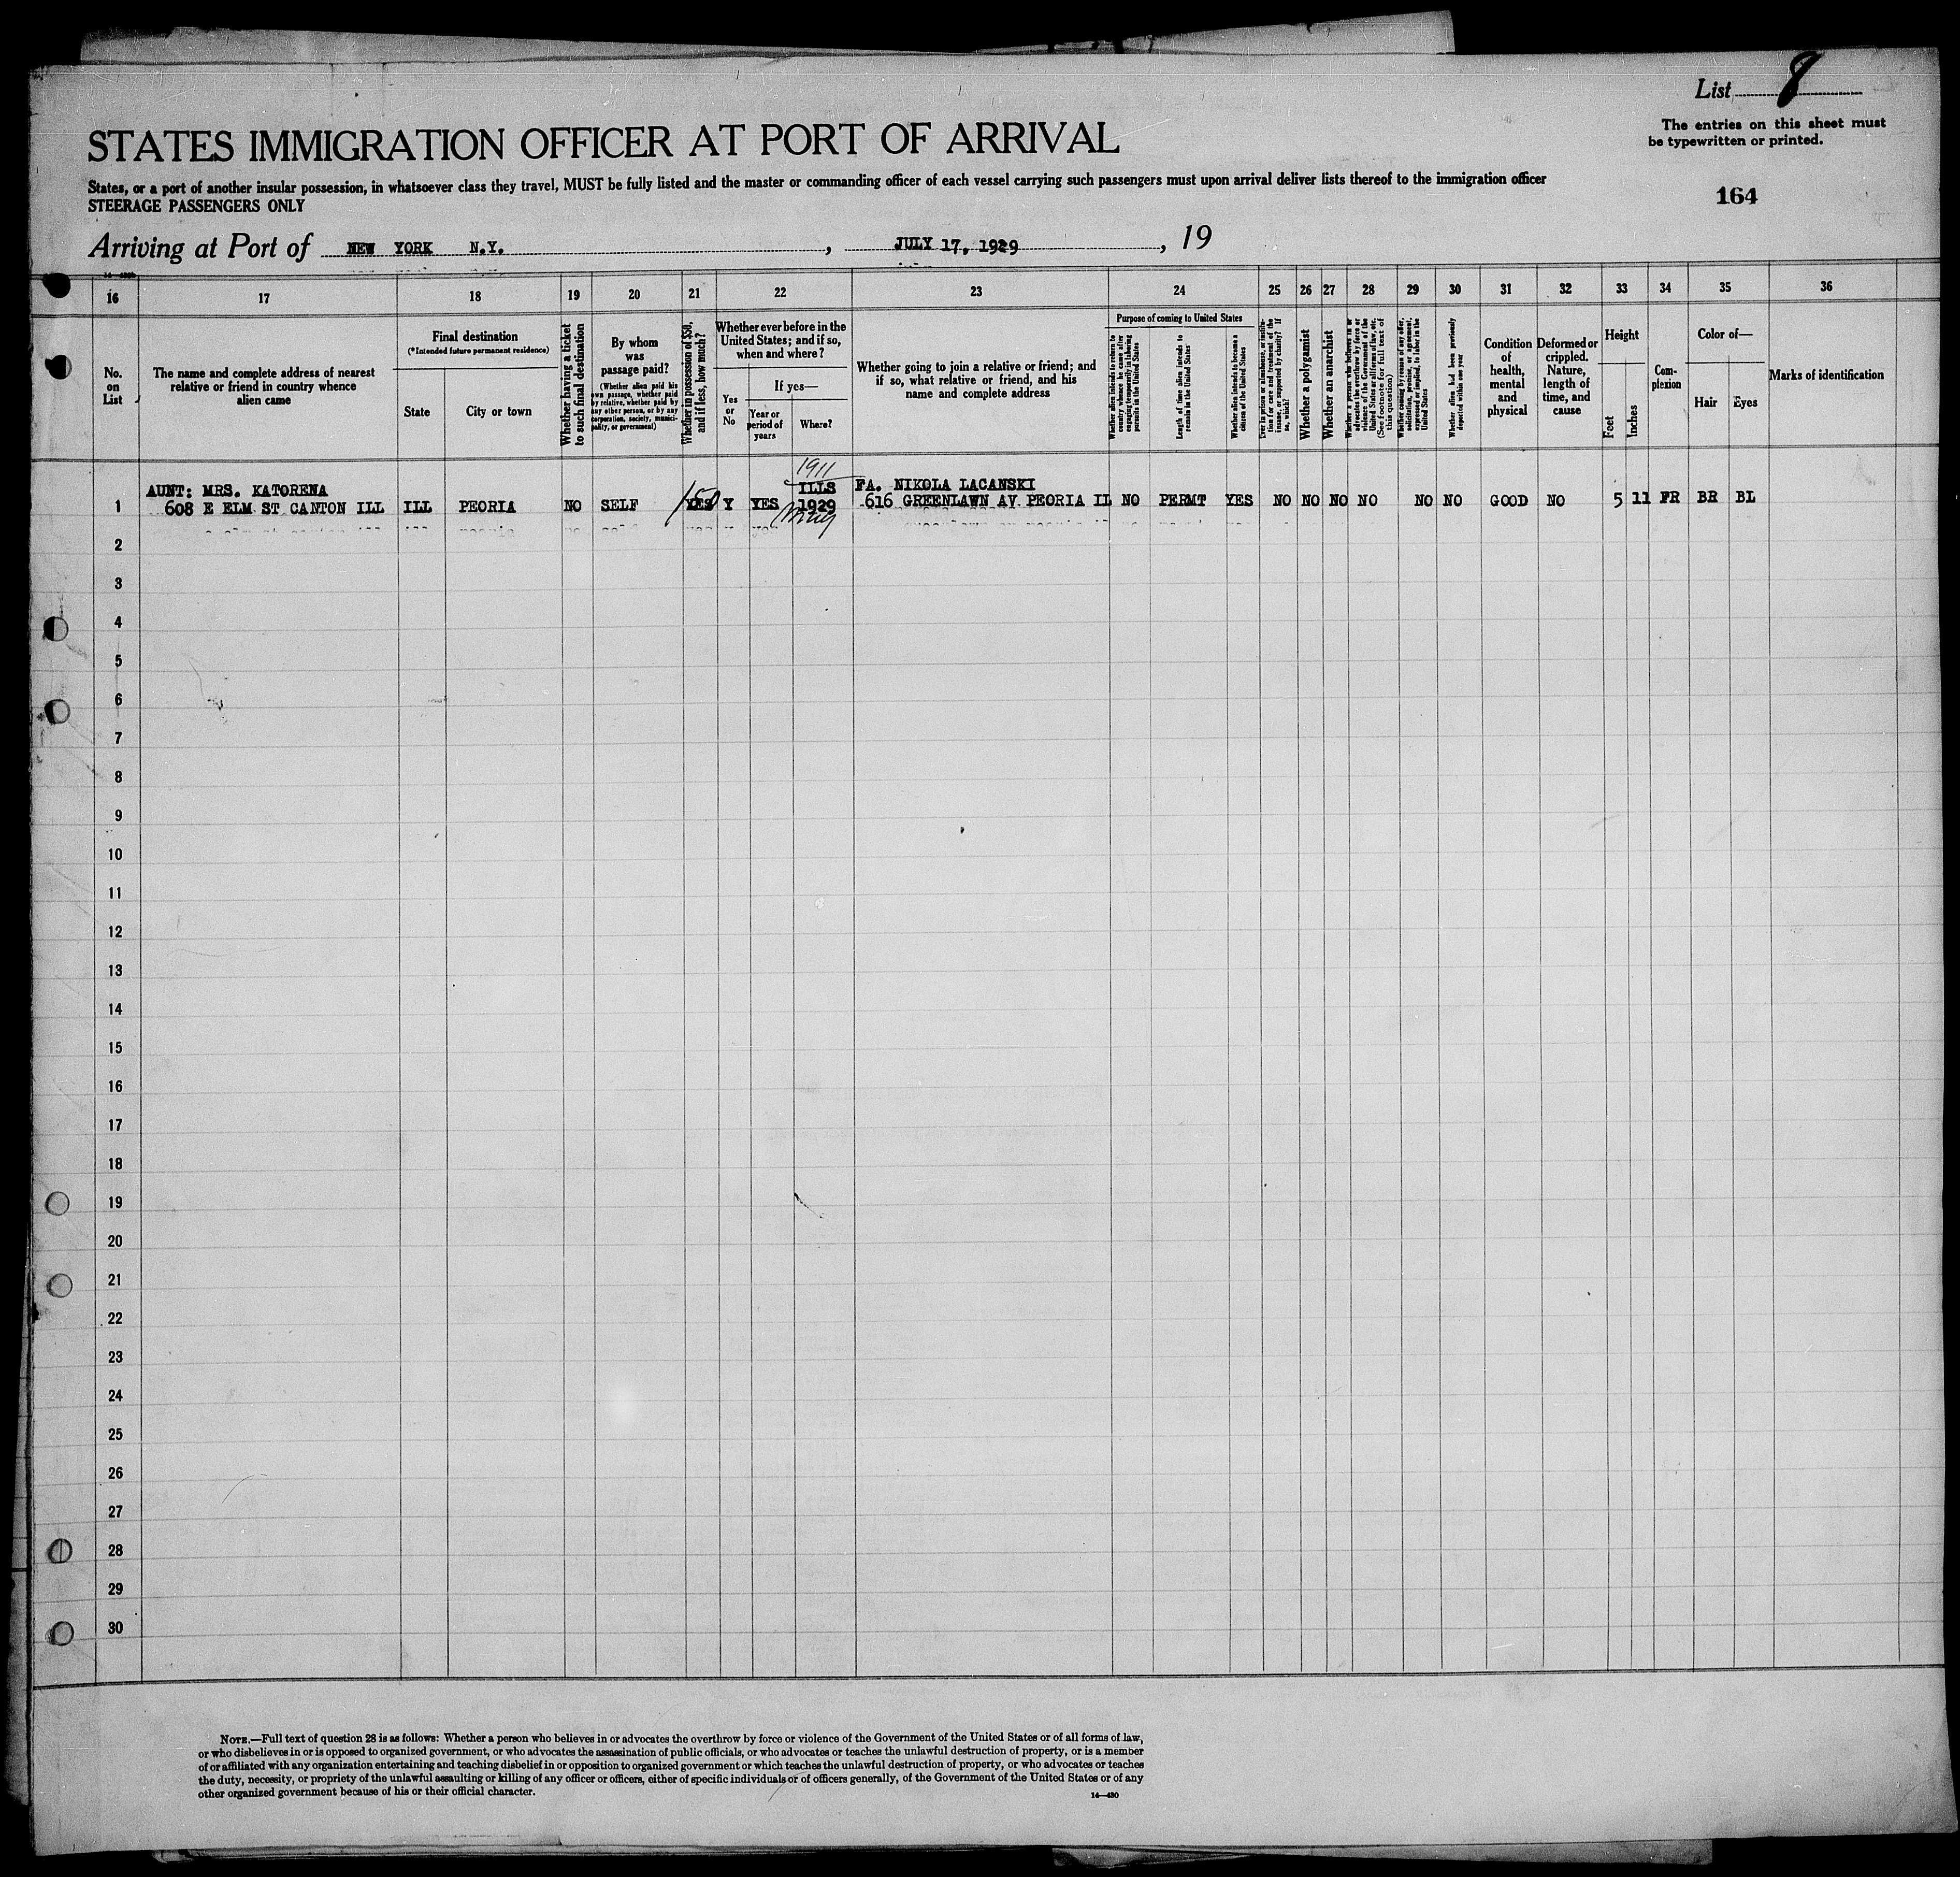 List 8
The entries on this sheet must
be typewritten or printed.
STATES IMMIGRATION OFFICER AT PORT OF ARRIVAL
States, or a port of another insular possession, in whatsoever class they travel, MUST be fully listed and the master or commanding officer of each vessel carrying such passengers must upon arrival deliver lists thereof to the immigration officer
STEERAGE PASSENGERS ONLY
164
Arriving at Port of NEW YORK N.Y. , JULY 17, 1929 , 19
16 17 18 19 20 21 22 23 24 25 26 27 28 29 30 31 32 33 34 35 36
No.
on
List
The name and complete address of nearest
relative or friend in country whence
alien came
Final destination
(*Intended future permanent residence)
State
City or town
Whether having a ticket
to such final destination
By whom
was
passage paid?
(Whether alien paid his
own passage, whether paid
by relative, whether paid by
any other person, or by any
corporation, society, munici-
pality, or government)
Whether in possession of $50,
and if less, how much?
Whether ever before in the
United States; and if so,
when and where?
Yes
or
No
If yes—
Year or
period of
years
Where?
Whether going to join a relative or friend; and
if so, what relative or friend, and his
name and complete address
Purpose of coming to United States
Whether alien intends to return to
country whence he came after
engaging temporarily in laboring
pursuits in the United States
Length of time alien intends to
remain in the United States
Whether alien intends to become a
citizen of the United States
Ever in prison or almshouse, or institu-
tion for care and treatment of the
insane, or supported by charity? If
so, which?
Whether a polygamist
Whether an anarchist
Whether a person who believes in or
advocates the overthrow by force or
violence of the Government of the
United States or all forms of law, etc.
(See footnote for full text of
this question)
Whether coming by reason of any offer,
solicitation, promise, or agreement,
expressed or implied, to labor in the
United States
Whether alien had been previously
deported within one year
Condition
of
health,
mental
and
physical
Deformed or
crippled.
Nature,
length of
time, and
cause
Height
Feet
Inches
Com-
plexion
Color of—
Hair
Eyes
Marks of identification
1911
AUNT: MRS. KATORENA ILLS FA. NIKOLA LACANSKI
1 608 E ELM ST CANTON ILL ILL PEORIA NO SELF YES 150 Y YES 1929 616 GREENLAWN AV PEORIA IL NO PERMT YES NO NO NO NO NO NO GOOD NO 5 11 FR BR BL
2
3
4
5
6
7
8
9
10
11
12
13
14
15
16
17
18
19
20
21
22
23
24
25
26
27
28
29
30
NOTE.—Full text of question 28 is as follows: Whether a person who believes in or advocates the overthrow by force or violence of the Government of the United States or of all forms of law,
or who disbelieves in or is opposed to organized government, or who advocates the assassination of public officials, or who advocates or teaches the unlawful destruction of property, or is a member
of or affiliated with any organization entertaining and teaching disbelief in or opposition to organized government or which teaches the unlawful destruction of property, or who advocates or teaches
the duty, necessity, or propriety of the unlawful assaulting or killing of any officer or officers, either of specific individuals or of officers generally, of the Government of the United States or of any
other organized government because of his or their official character.
14—430